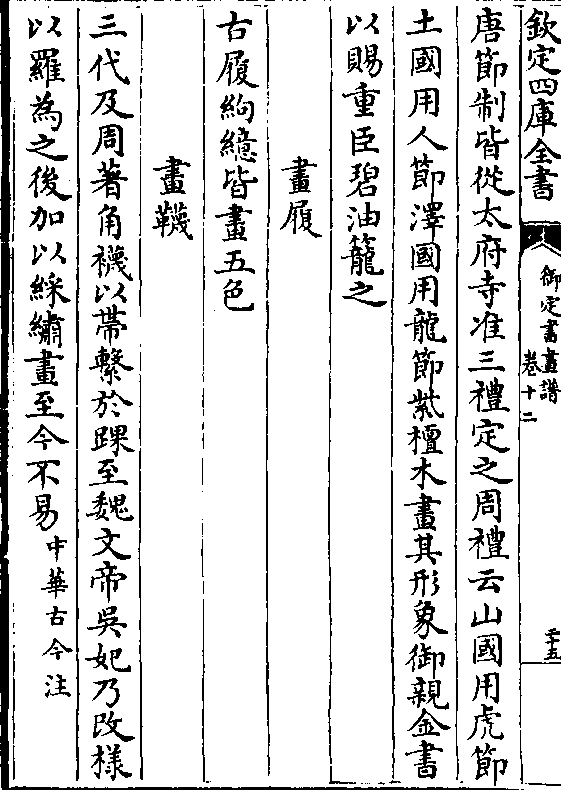 欽定四庫全書
御定書畫譜
卷十二
二十五
唐節制皆從太府寺准三禮定之周禮云山國用虎節
土國用人節澤國用龍節紫檀木畫其形象御親金書
以賜重臣碧油籠之
畫履
古履絇繶皆畫五色
畫韈
三代及周著角襪以帶繫於踝至魏文帝吳妃乃改樣
以羅為之後加以綵繡畫至今不易中華古今注